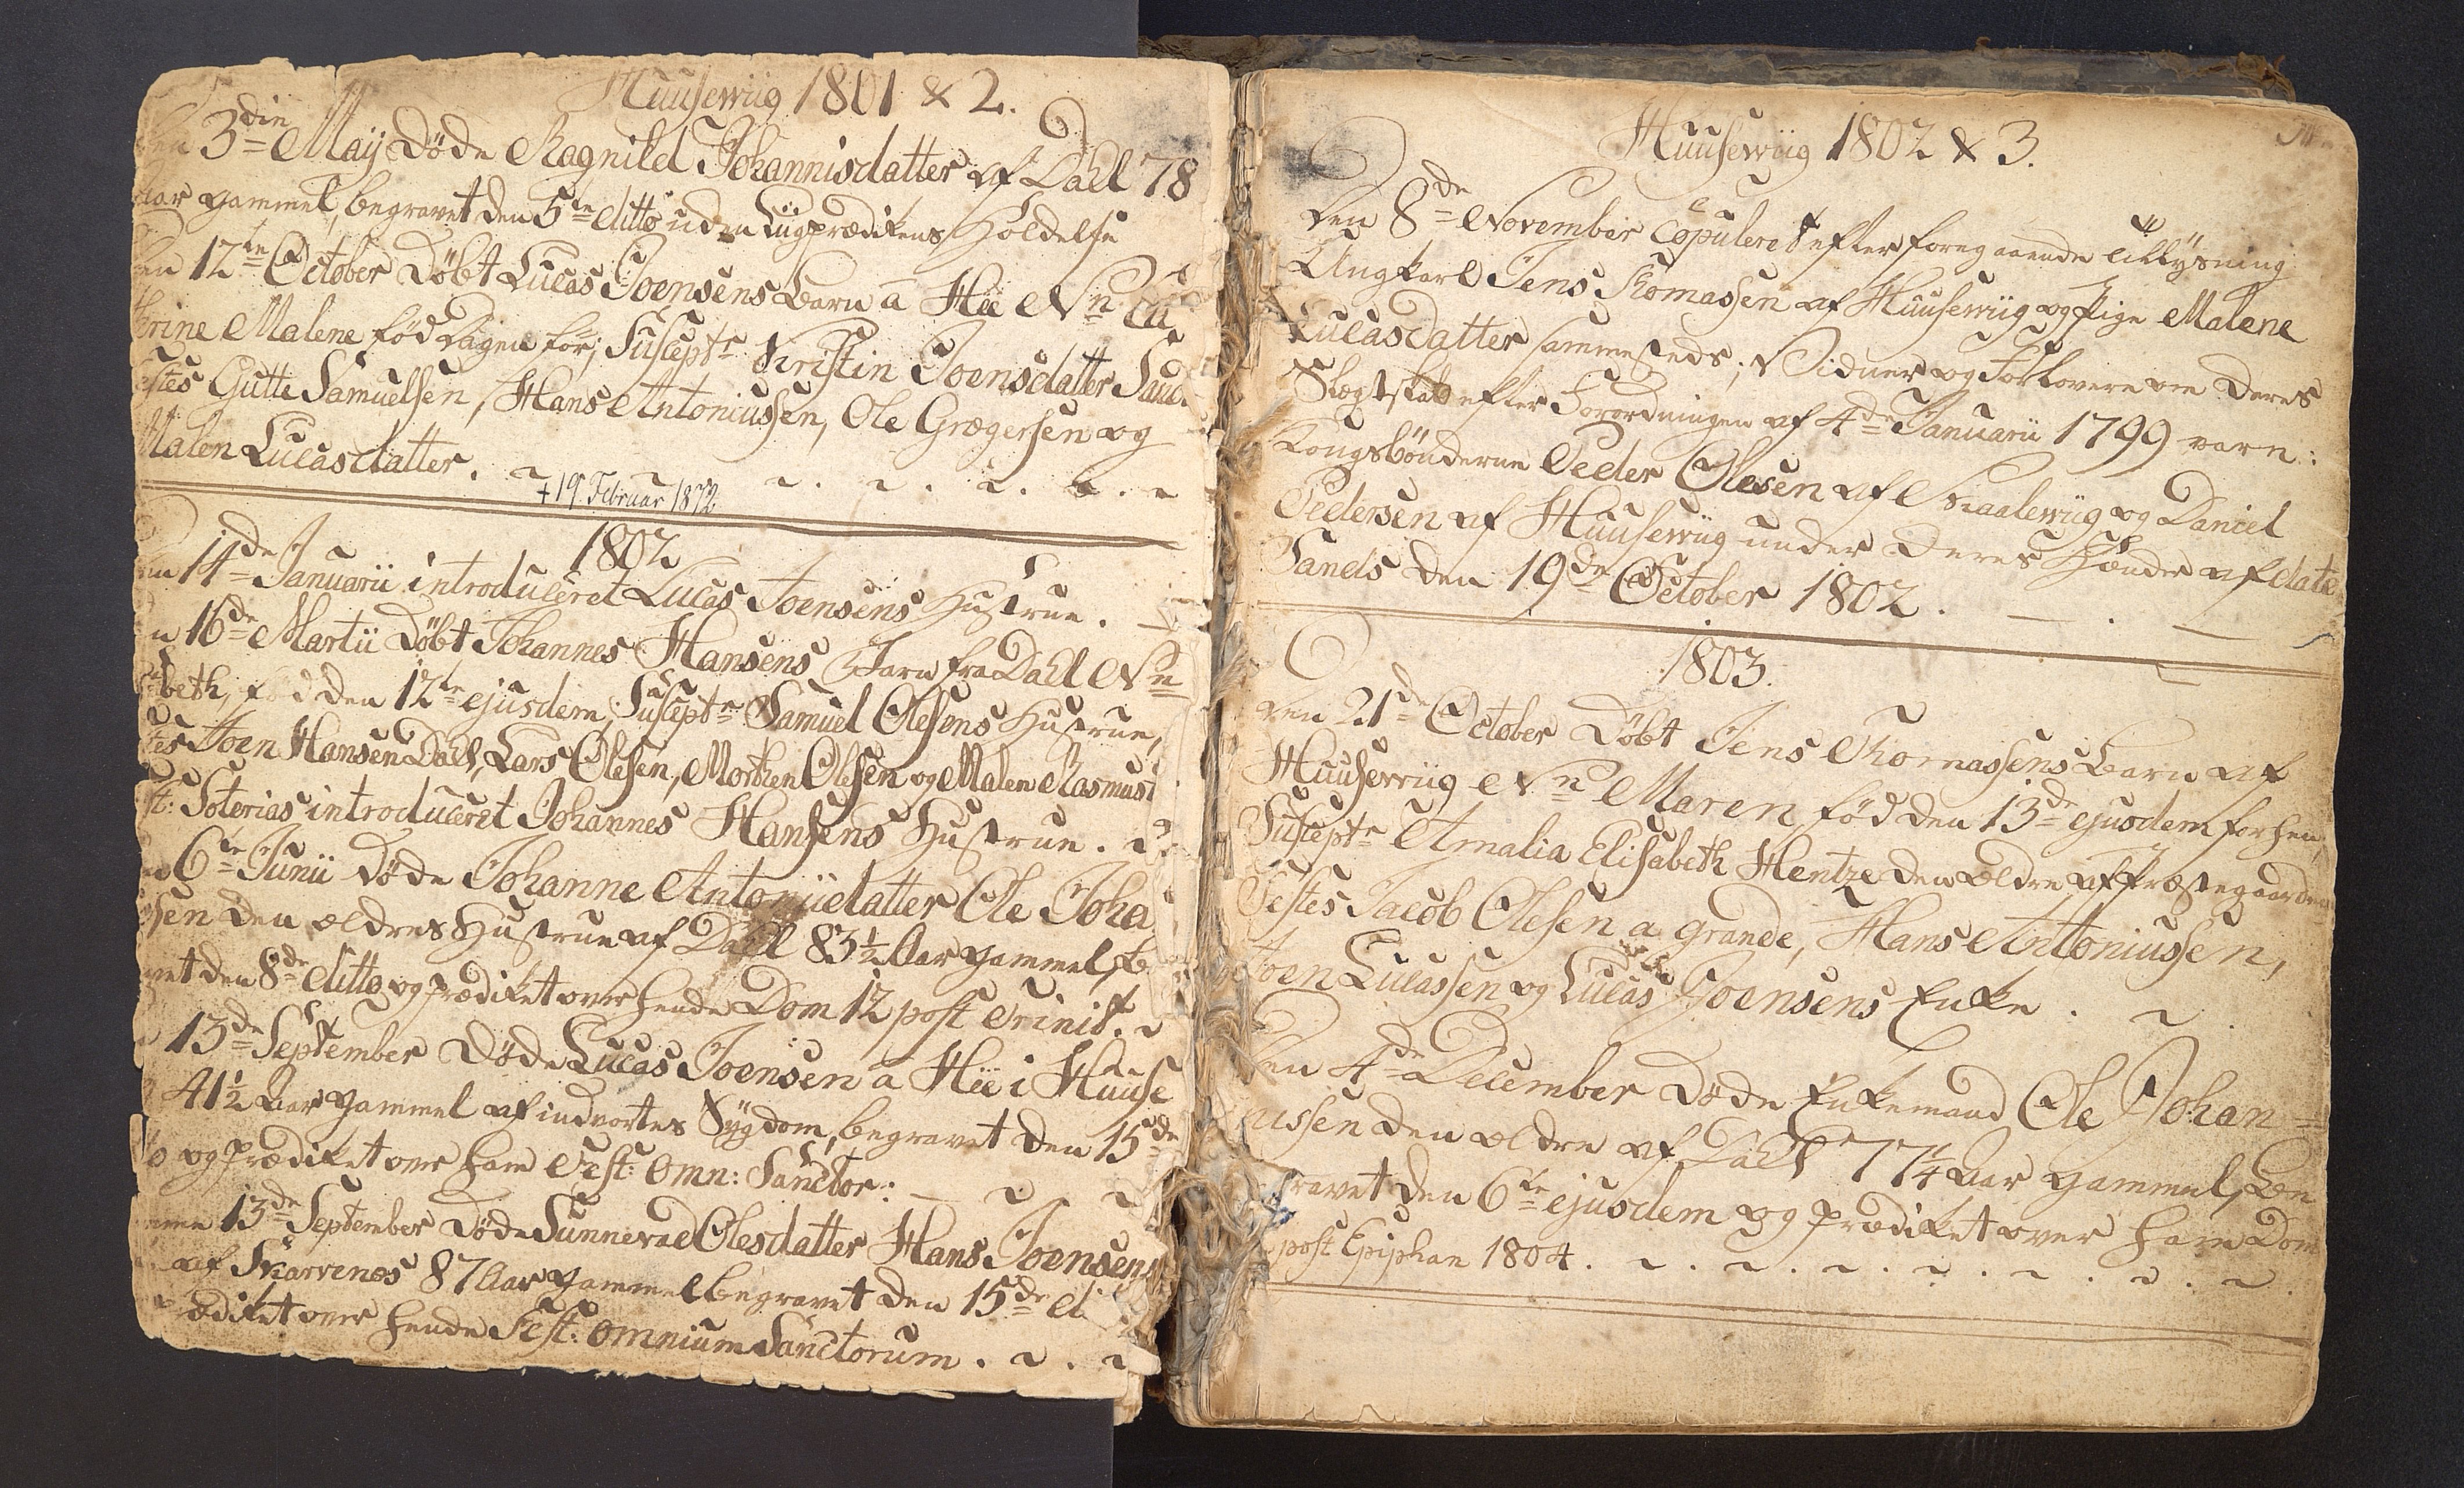 Huusewiig 1801 & 2.
den 3die Maij døde Ragnild Johannisdatter af Dahl 78
Aar gammel, begravet den 5te ditto uden Liigprædikens Holdelse
den 12te October døbt Lucas Joensens Barn a Hee Nn
Malene fød Dagen før; Suscept Kristin Joensdatter Sand.
Gutte Samuelsen, Hans Antoniussen, Ole Grægersen og
Malen Lucasdatter.
+ 19. Februar 1872
1802
14de Januarii introduceret Lucas Joensens Hustrue.
16de Martii døbt Johannes Hansens Barn fra Dahl Nn
beth, fød den 12te ejusdem, Susceptr Samuel Olesens Hustrue,
Joen Hansen Dahl, Lars Olesen, Morthen Olesen og Malen Rasmusd
Soterias introduceret Johannes Hansens Hustrue.
6te Junii døde Johanne Antoniidatter Ole Joha
sen den ældres Hustrue af Dahl 83½ Aar gammel, b
vet den 8de ditto og prædiket over hende Dom 12 post Trinit.
13de September døde Lucas Joensen a Hee i Huuse
41½ Aar gammel af indvortes Sygdom, begravet den 15de
to og prædiket over ham Fest: Omn: Sanctor:
13de September døde Sunnevae Olesdatter Hans Joensens
af Skarvenes 87 Aar gammel begravet den 15de di
ædiket over hende Fest: omnium Sanctorum.
Huusewiig 1802 & 3.
den 8de November Copuleret efter foregaaende tillysning
Ungkarl Jens Thomassen af Huusewiig og Pige Malene
Lucasdatter sammesteds; Vidner og Forlovere om deres
Slegtskab efter Forordningen af 4de Januarii 1799 vare:
Kongsbønderne Peder Olesen af Skaalewiig og Daniel
Pedersen af Huusewiig under deres Hænder af dato
Sands den 19de October 1802.
1803.
den 21de October døbt Jens Thomassens Barn af
Huusewiig Nn Maren fød den 13de ejusdem forhen,
Susceptr Amalia Elisabeth Hentze den ældre af Præstegaarden
Testes Jacob Olesen a grande, Hans Anttoniussen,
Joen Lucassen og Lucas Joensens Enke.
den 4de December døde Enkemand Ole Johan-
nissen den ældre af Dahl 77¼ Aar gammel, be
gravet den 6te ejusdem og prædiket over ham Dom
post Epiphan 1804.